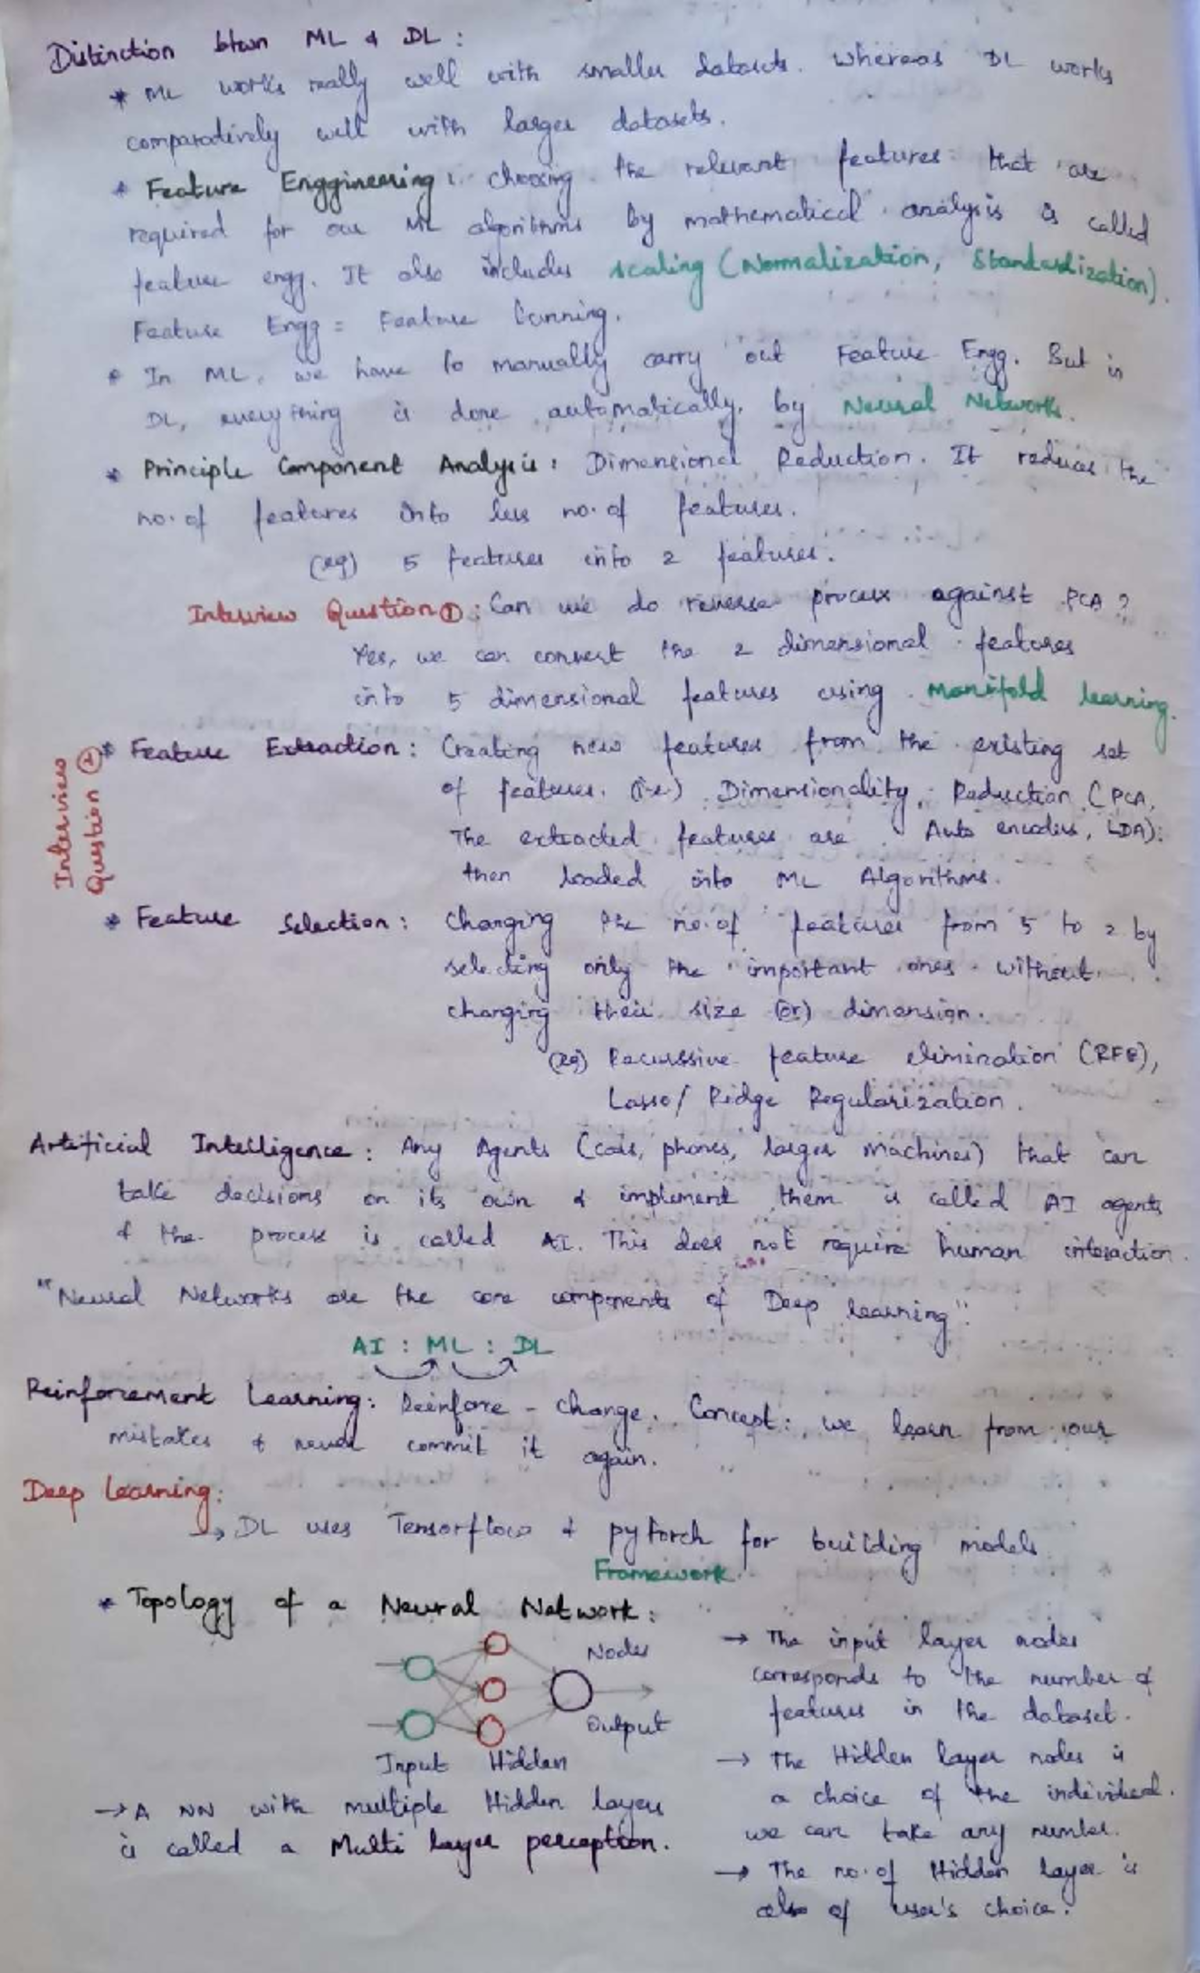 Distinction btwn ML & DL :
* ML works really well with smaller datasets. Whereas DL works
comparatively well with larger datasets.
* Feature Enggineering : choosing the relevant features that are
required for our ML algorithms by mathematical analysis is called
feature engg. It also includes scaling (Normalization, Standardization).
Feature Engg = Feature
* In ML, we have to manually carry out Feature Engg. But in
DL, everything is done automatically, by Neural Networks.
* Principle Component Analysis : Dimensional Reduction. It reduces the
no. of features into less no. of features.
(eg) 5 features into 2 features.
Interview Question ① : Can we do reverse process against PCA ?
Yes, we can convert the 2 dimensional features
into 5 dimensional features using Manifold learning.
Interview Question ②
* Feature Extraction : Creating new features from the existing set
of features. (i.e) Dimensionality Reduction (PCA,
Auto encoders, LDA).
The extracted features are
then loaded into ML Algorithms.
* Feature Selection : Changing the no. of features from 5 to 2 by
selecting only the important ones without
changing their size (or) dimension.
(eg) Recurssive feature elimination (RFE),
Lasso/ Ridge Regularization.
Artificial Intelligence : Any Agents (cars, phones, larger machines) that can
take decisions on its own & implement them is called AI agents
& the process is called AI. This does not require human interaction.
"Neural Networks are the core components of Deep learning".
AI : ML : DL
Reinforcement Learning : Reinforce - Change. Concept : we learn from our
mistakes & never commit it again.
Deep Learning :
→ DL uses Tensorflow & pytorch for building models
Framework
* Topology of a Neural Network :
Nodes
Output
Input Hidden
→ A NN with multiple Hidden layers
is called a Multi layer perception.
→ The input layer nodes
corresponds to the number of
features in the dataset.
→ The Hidden layer nodes is
a choice of the individual.
we can take any number.
→ The no. of Hidden layer is
also of user's choice.